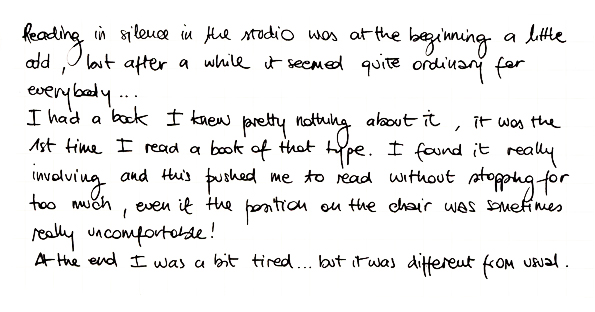 Reading in silence in the studio was at the beginning a little
odd, but after a while it seemed quite ordinary for
everybody...
I had a book I knew pretty nothing about it, it was the
1st time I read a book of that type. I found it really
involving and this pushed me to read without stopping for
too much, even if the position on the chair was sometimes
really uncomfortable!
At the end I was a bit tired... but it was different from usual.